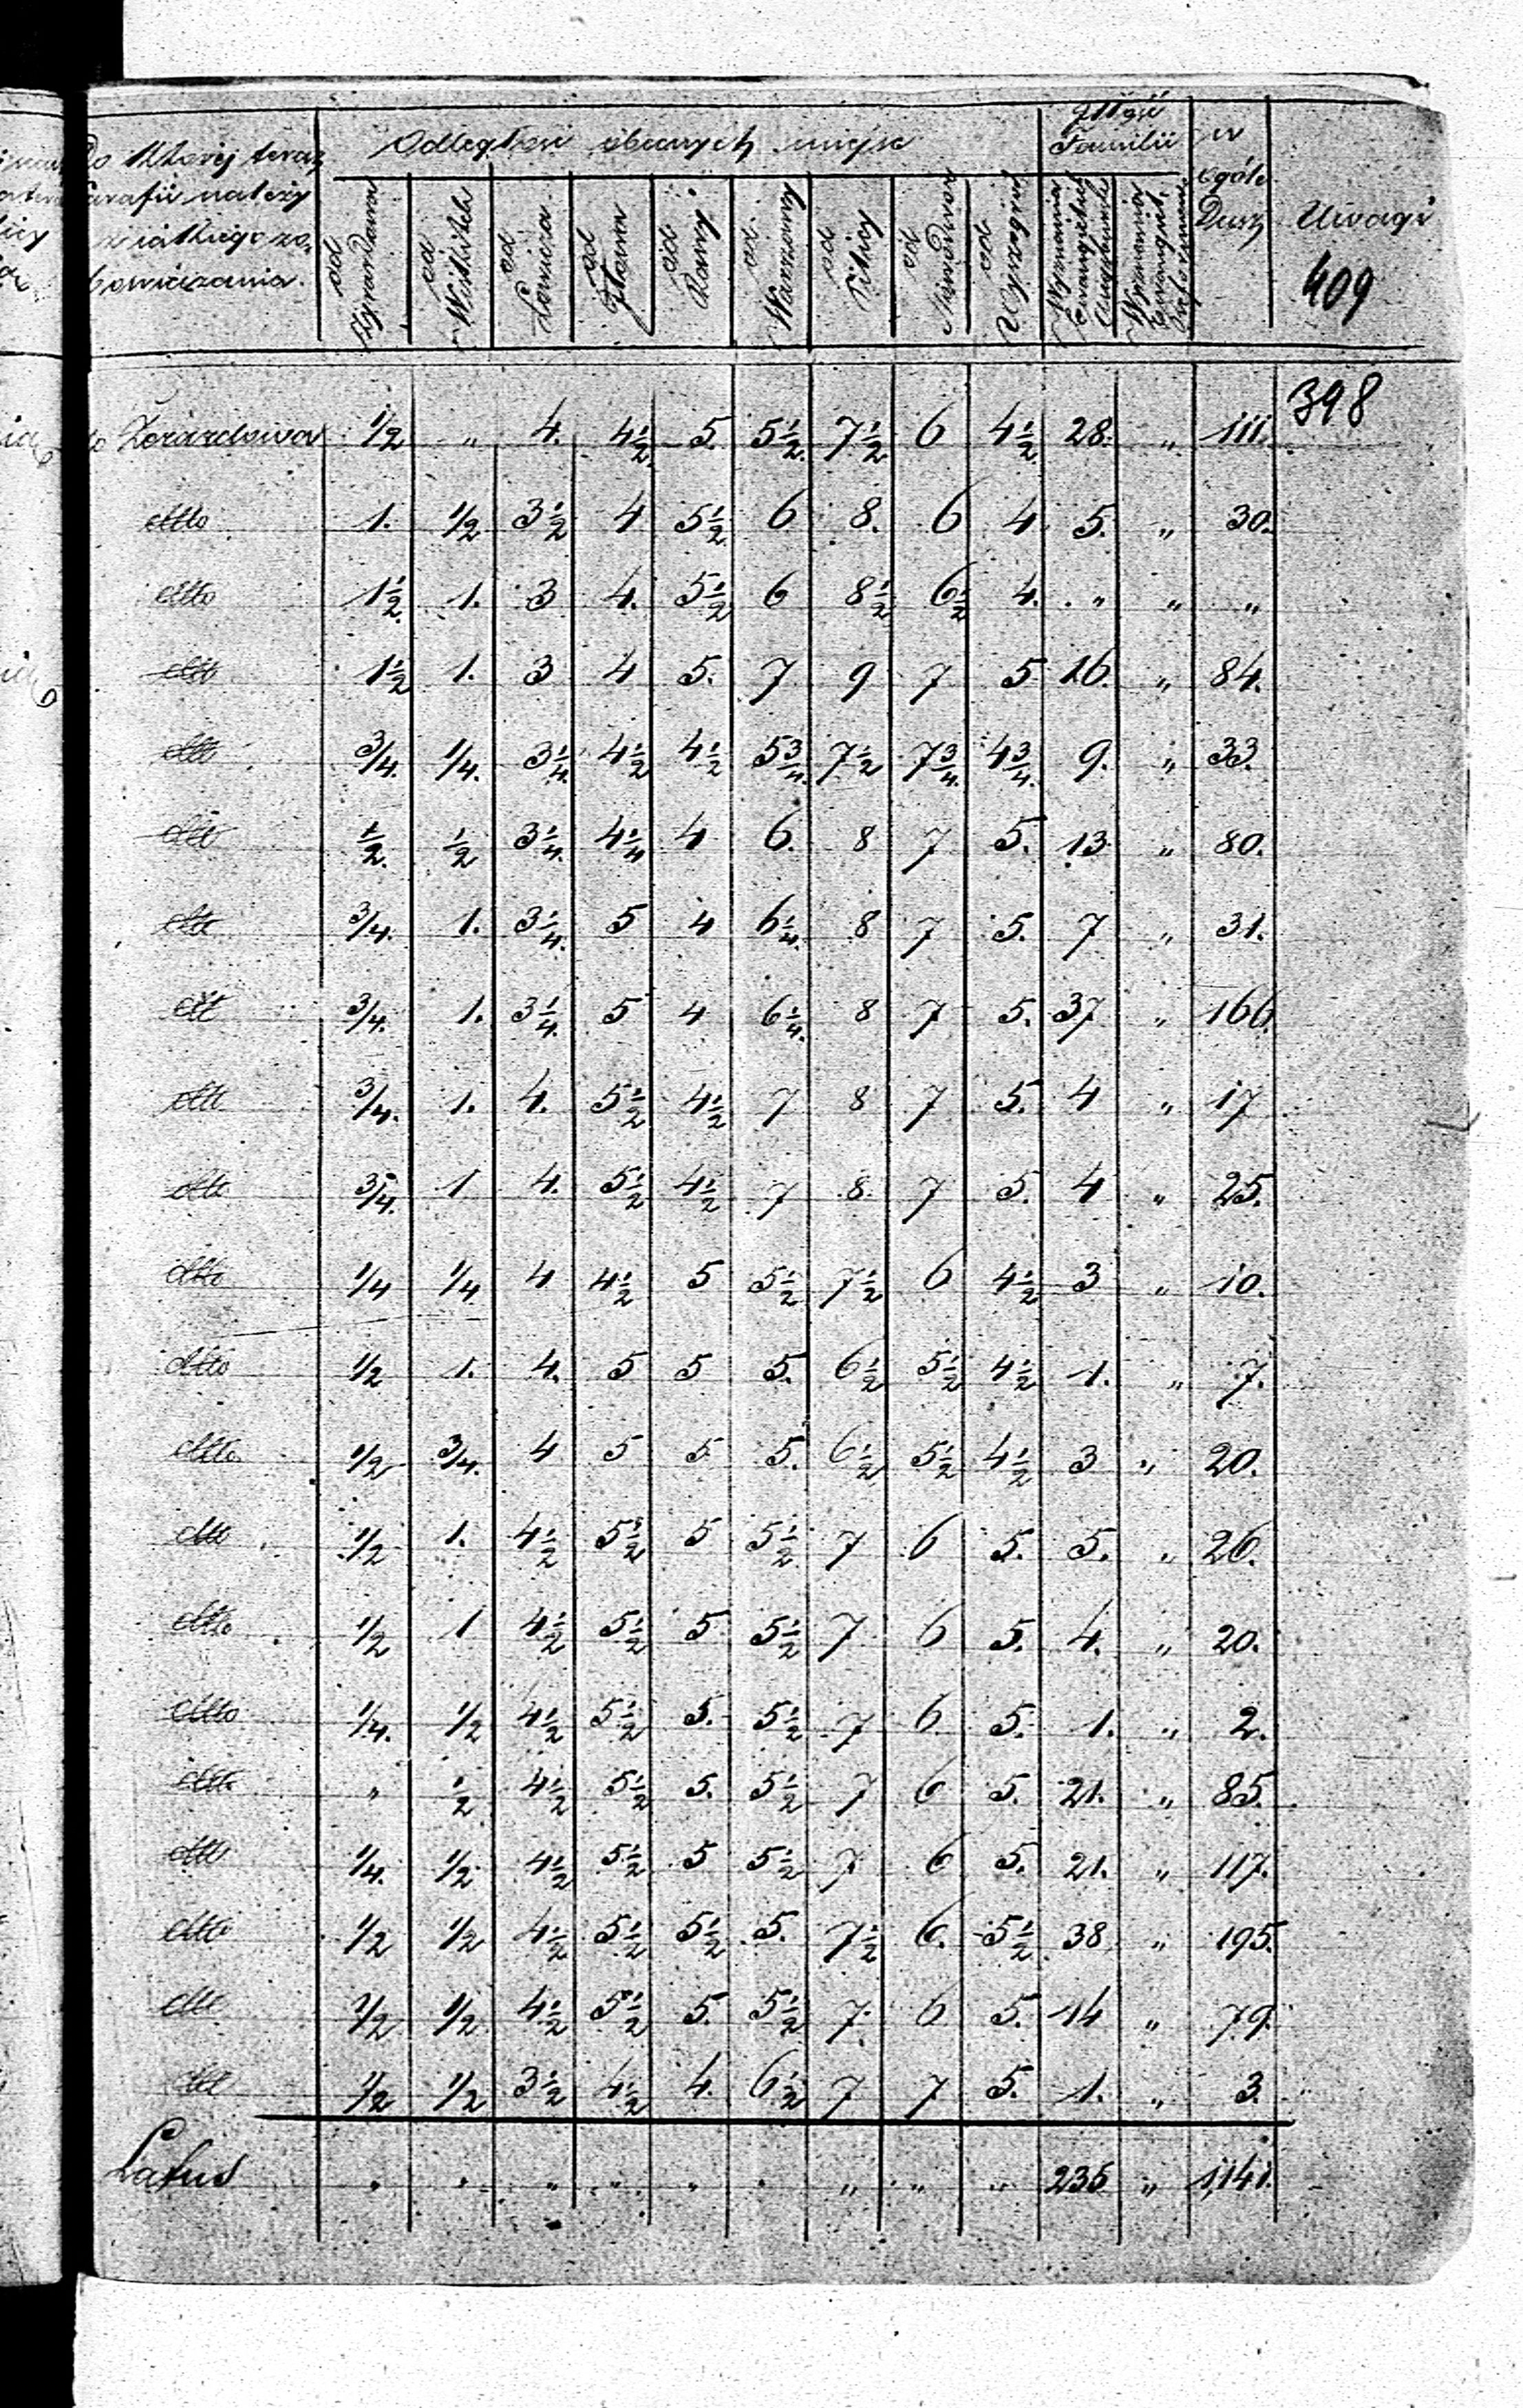 Do której teraz
Parafii należy
Odległość obecnych miejsc
Familii
w
ogóle
Dusz
Uwagi
409
od Żyrardowa
od Wiskitek
od Łowicza
od Iłowa
od Rawy
od Warszawy
od Pilicy
od
od
Wyznania Ewangelick Augsburski
Wyznania Ewangiel. Reformow.
398
do Żerardowa 1/2 " 4. 4 1/2 5. 5 1/2 7 1/2 6 4 1/2 28. " 111.
dtto 1. 1/2 3 1/2 4 5 1/2 6 8. 6 4 5. " 30.
dtto 1 1/2 1. 3 4. 5 1/2 6 8 1/2 6 1/2 4. " " "
dtt 1 1/2 1. 3 4 5. 7 9 7 5 16. " 84.
dtt 3/4. 1/4. 3 1/4. 4 1/2 4 1/2 5 3/4. 7 1/2 7 3/4. 4 3/4. 9. " 33.
dtt 1/2. 1/2 3 1/4. 4 1/4 4 6. 8 7 5. 13. " 80.
dtt 3/4. 1. 3 1/4. 5 4 6 1/4. 8 7 5. 7 " 31.
dtt 3/4. 1. 3 1/4. 5 4 6 1/4. 8 7 5. 37 " 166.
dtt 3/4. 1. 4. 5 1/2 4 1/2 7 8 7 5. 4 " 17
dtt 3/4. 1 4. 5 1/2 4 1/2 7 8. 7 5. 4 " 25.
dtto 1/4 1/4 4 4 1/2 5 5 1/2 7 1/2 6 4 1/2 3 " 10.
dtto 1/2 1. 4. 5 5 5. 6 1/2 5 1/2 4 1/2 1. " 7.
dtto 1/2 3/4. 4 5 5 5. 6 1/2 5 1/2 4 1/2 3 " 20.
dtto 1/2 1. 4 1/2 5 1/2 5 5 1/2 7 6 5. 5. " 26.
dtto 1/2 1 4 1/2 5 1/2 5 5 1/2 7 6 5. 4. " 20.
dtto 1/4. 1/2 4 1/2 5 1/2 5. 5 1/2 7 6 5. 1. " 2.
dtto " 1/2 4 1/2 5 1/2 5. 5 1/2 7 6 5. 21. " 85.
dtt 1/4. 1/2 4 1/2 5 1/2 5 5 1/2 7 6 5. 21. " 117.
dtto 1/2 1/2 4 1/2 5 1/2 5 1/2 5. 7 1/2 6. 5 1/2 38 " 195.
dtt 1/2 1/2 4 1/2 5 1/2 5. 5 1/2 7. 6 5. 14 " 79.
dtt 1/2 1/2 3 1/2 4 1/2 4. 6 1/2 7 7 5. 1. " 3.
Latus " " " " " " " " " 235 " 1,141.